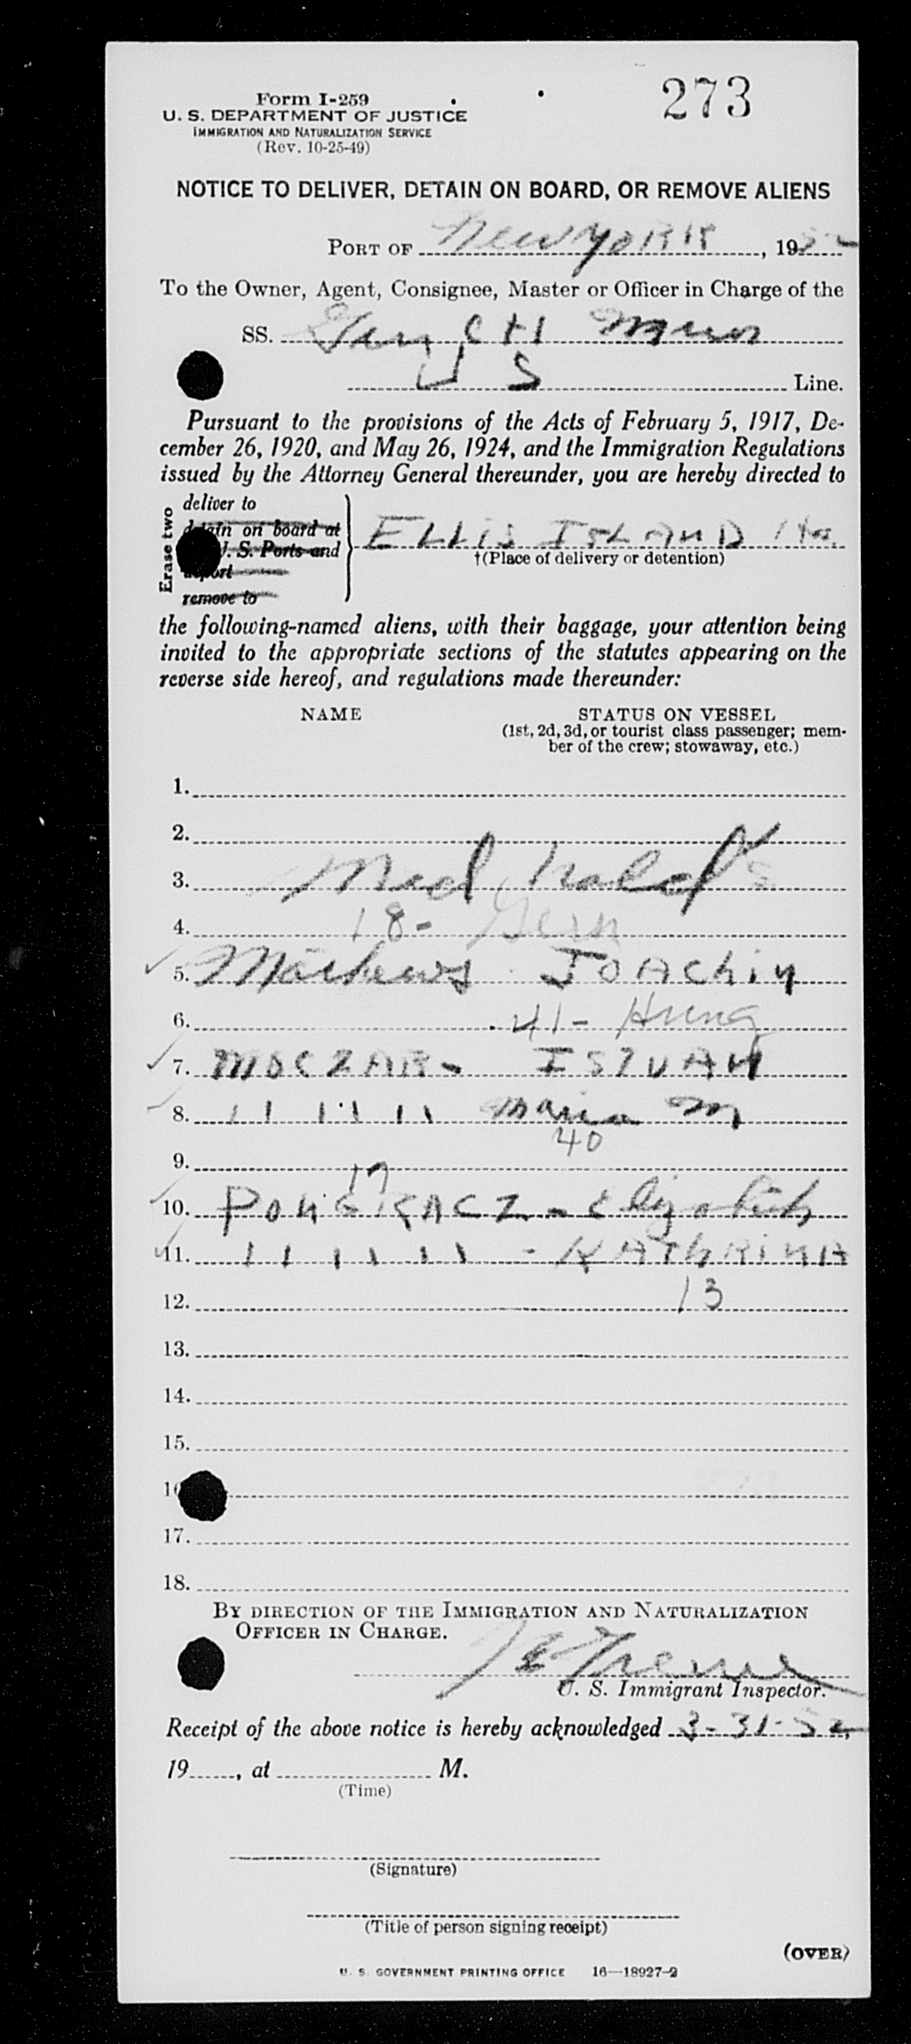 273
Form I-259
U. S. DEPARTMENT OF JUSTICE
IMMIGRATION AND NATURALIZATION SERVICE
(Rev. 10-25-49)
NOTICE TO DELIVER, DETAIN ON BOARD, OR REMOVE ALIENS
PORT OF New YORK, 1952
To the Owner, Agent, Consignee, Master or Officer in Charge of the
SS. CH
U S Line.
Pursuant to the provisions of the Acts of February 5, 1917, De-
cember 26, 1920, and May 26, 1924, and the Immigration Regulations
issued by the Attorney General thereunder, you are hereby directed to
Erase two
deliver to
detain on board at
U. S. Ports and
deport
remove to
ELLIS ISLAND
†(Place of delivery or detention)
the following-named aliens, with their baggage, your attention being
invited to the appropriate sections of the statutes appearing on the
reverse side hereof, and regulations made thereunder:
NAME STATUS ON VESSEL
(1st, 2d, 3d, or tourist class passenger; mem-
ber of the crew; stowaway, etc.)
1.
2.
3. Med hold's
4. 18- Germ
5. Mathews JOAChiM
6. 41- Hung
7. MOCZAR- ISTVAN
8. 11 11 11 Maria M
40
9.
17
10. PONGRACZ - Elizabeth
11. 11 11 11 - KAThRiNA
12. 13
13.
14.
15.
16
17.
18.
BY DIRECTION OF THE IMMIGRATION AND NATURALIZATION
OFFICER IN CHARGE.
U. S. Immigrant Inspector.
Receipt of the above notice is hereby acknowledged 3-31-52,
19......, at .................... M.
(Time)
(Signature)
(Title of person signing receipt)
(OVER)
U. S. GOVERNMENT PRINTING OFFICE 16—18927-2